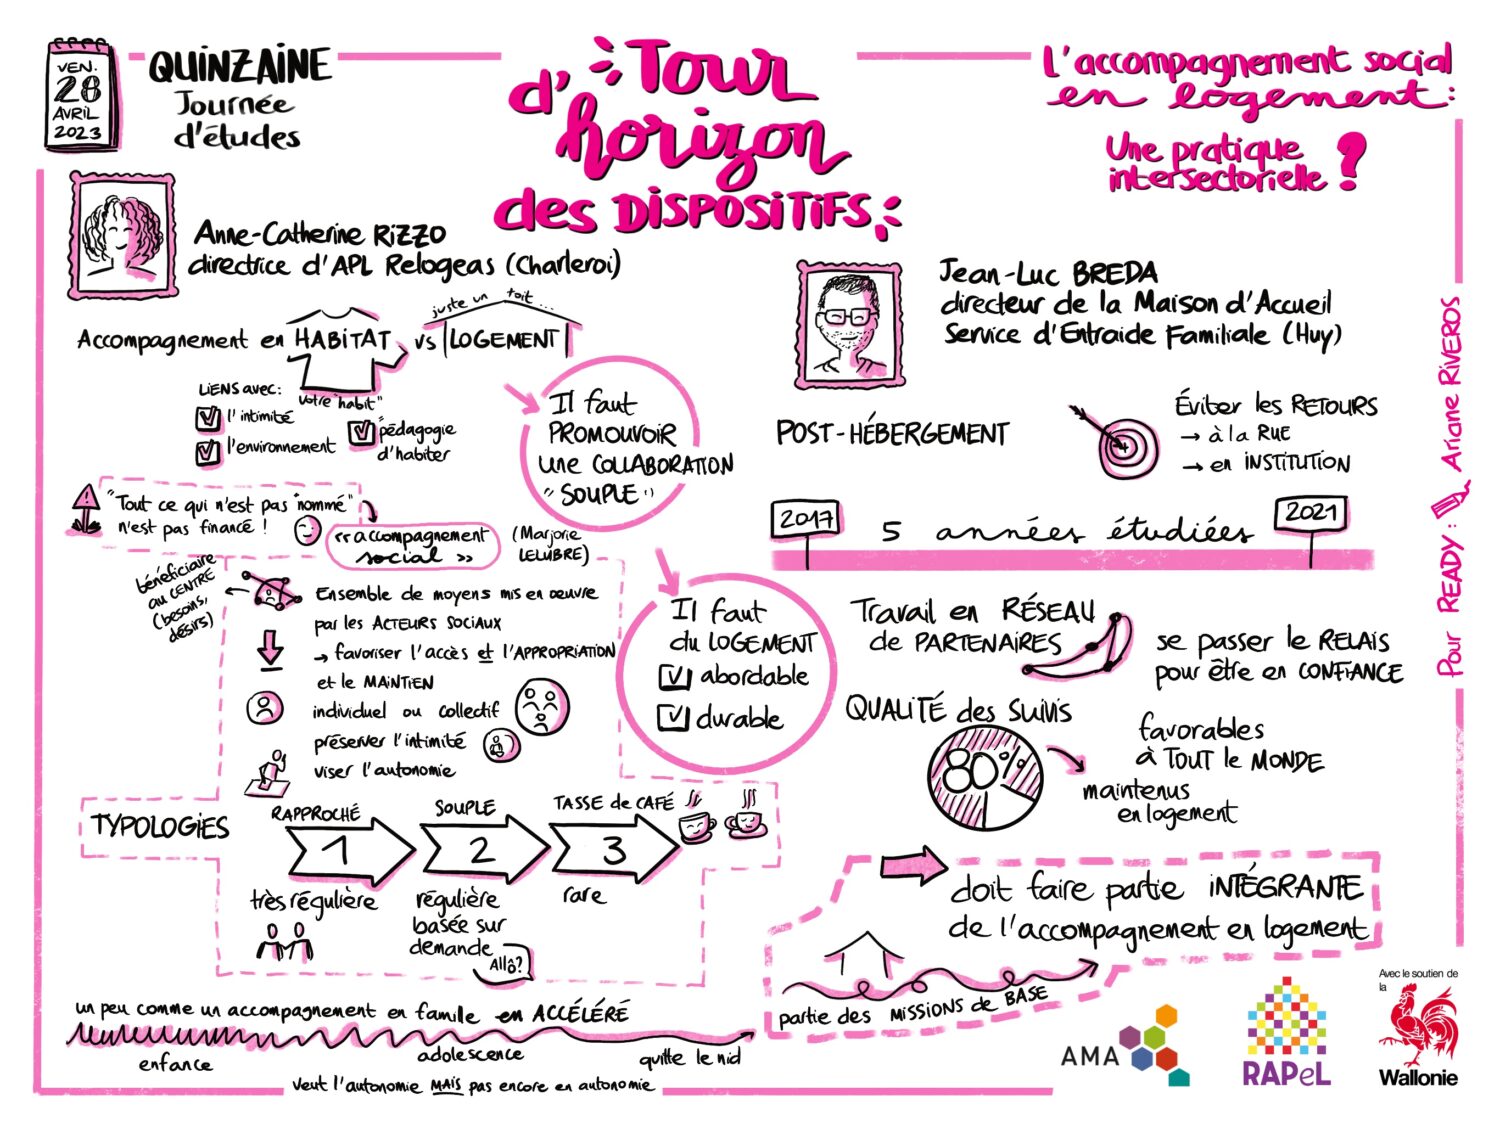 VEN.
28
AVRIL
2023
QUINZAINE
Journée
d'études
Tour
d'horizon
des DISPOSITIFS
L'accompagnement social
en logement :
Une pratique
intersectorielle ?
Anne-Catherine RIZZO
directrice d'APL Relogeas (Charleroi)
juste un toit ...
Accompagnement en HABITAT vs LOGEMENT
LIENS avec :
votre "habit"
l'intimité
l'environnement
"pédagogie
d'habiter
Il faut
PROMOUVOIR
une COLLABORATION
"SOUPLE"
"Tout ce qui n'est pas "nommé"
n'est pas financé !
<<accompagnement
social >>
(Marjorie
LELUBRE)
bénéficiaire
au CENTRE
(besoins,
désirs)
Ensemble de moyens mis en oeuvre
par les ACTEURS SOCIAUX
→ favoriser l'accès et l'APPROPRIATION
et le MAINTIEN
individuel ou collectif
préserver l'intimité
viser l'autonomie
Il faut
du LOGEMENT
abordable
durable
TYPOLOGIES
RAPPROCHÉ
SOUPLE
TASSE de CAFÉ
1
2
3
très régulière
régulière
basée sur
demande
Allô?
rare
un peu comme un accompagnement en famille en ACCÉLÉRÉ
enfance
adolescence
quitte le nid
Veut l'autonomie MAIS pas encore en autonomie
Jean-Luc BREDA
directeur de la Maison d'Accueil
Service d'Entraide Familiale (Huy)
POST-HÉBERGEMENT
Éviter les RETOURS
→ à la RUE
→ en INSTITUTION
2017
5 années étudiées
2021
Travail en RÉSEAU
de PARTENAIRES
se passer le RELAIS
pour être en CONFIANCE
QUALITÉ des SUIVIS
80%
favorables
à TOUT le MONDE
maintenus
en logement
doit faire partie INTÉGRANTE
de l'accompagnement en logement
partie des MISSIONS de BASE
Pour READY : Ariane RIVEROS
AMA
RAPeL
Avec le soutien de
la
Wallonie